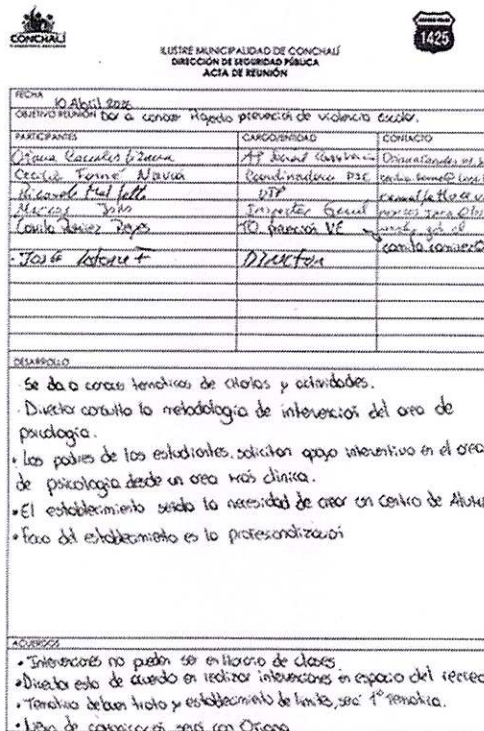 CONCHALÍ
1425
ILUSTRE MUNICIPALIDAD DE CONCHALÍ
DIRECCIÓN DE SEGURIDAD PÚBLICA
ACTA DE REUNIÓN
FECHA 10 Abril
OBJETIVO REUNIÓN Dar a conocer prevención de violencia escolar.
PARTICIPANTES CARGO/ENTIDAD CONTACTO
Oriana
Cecilia Navia Coordinadora PIE
Ricardo UTP
Inspector Gral
Camila Rojas TO prevención VE
José DIRECTOR
DESARROLLO
Se da a conocer tematicas de charlas y actividades.
Director consulta la metodologia de intervencion del area de
psicologia.
• Los padres de los estudiantes, solicitan apoyo interventivo en el area
de psicologia desde un area más clinica.
• El establecimiento señala la necesidad de crear un centro de
• Foco del establecimiento es la profesionalizacion
ACUERDOS
• Intervenciones no pueden ser en Horario de clases.
• Director esta de acuerdo en realizar intervenciones en espacio del recreo
• Tematica de buen trato y establecimiento de limites, será 1° tematica.
• de comunicacion será con Oriana